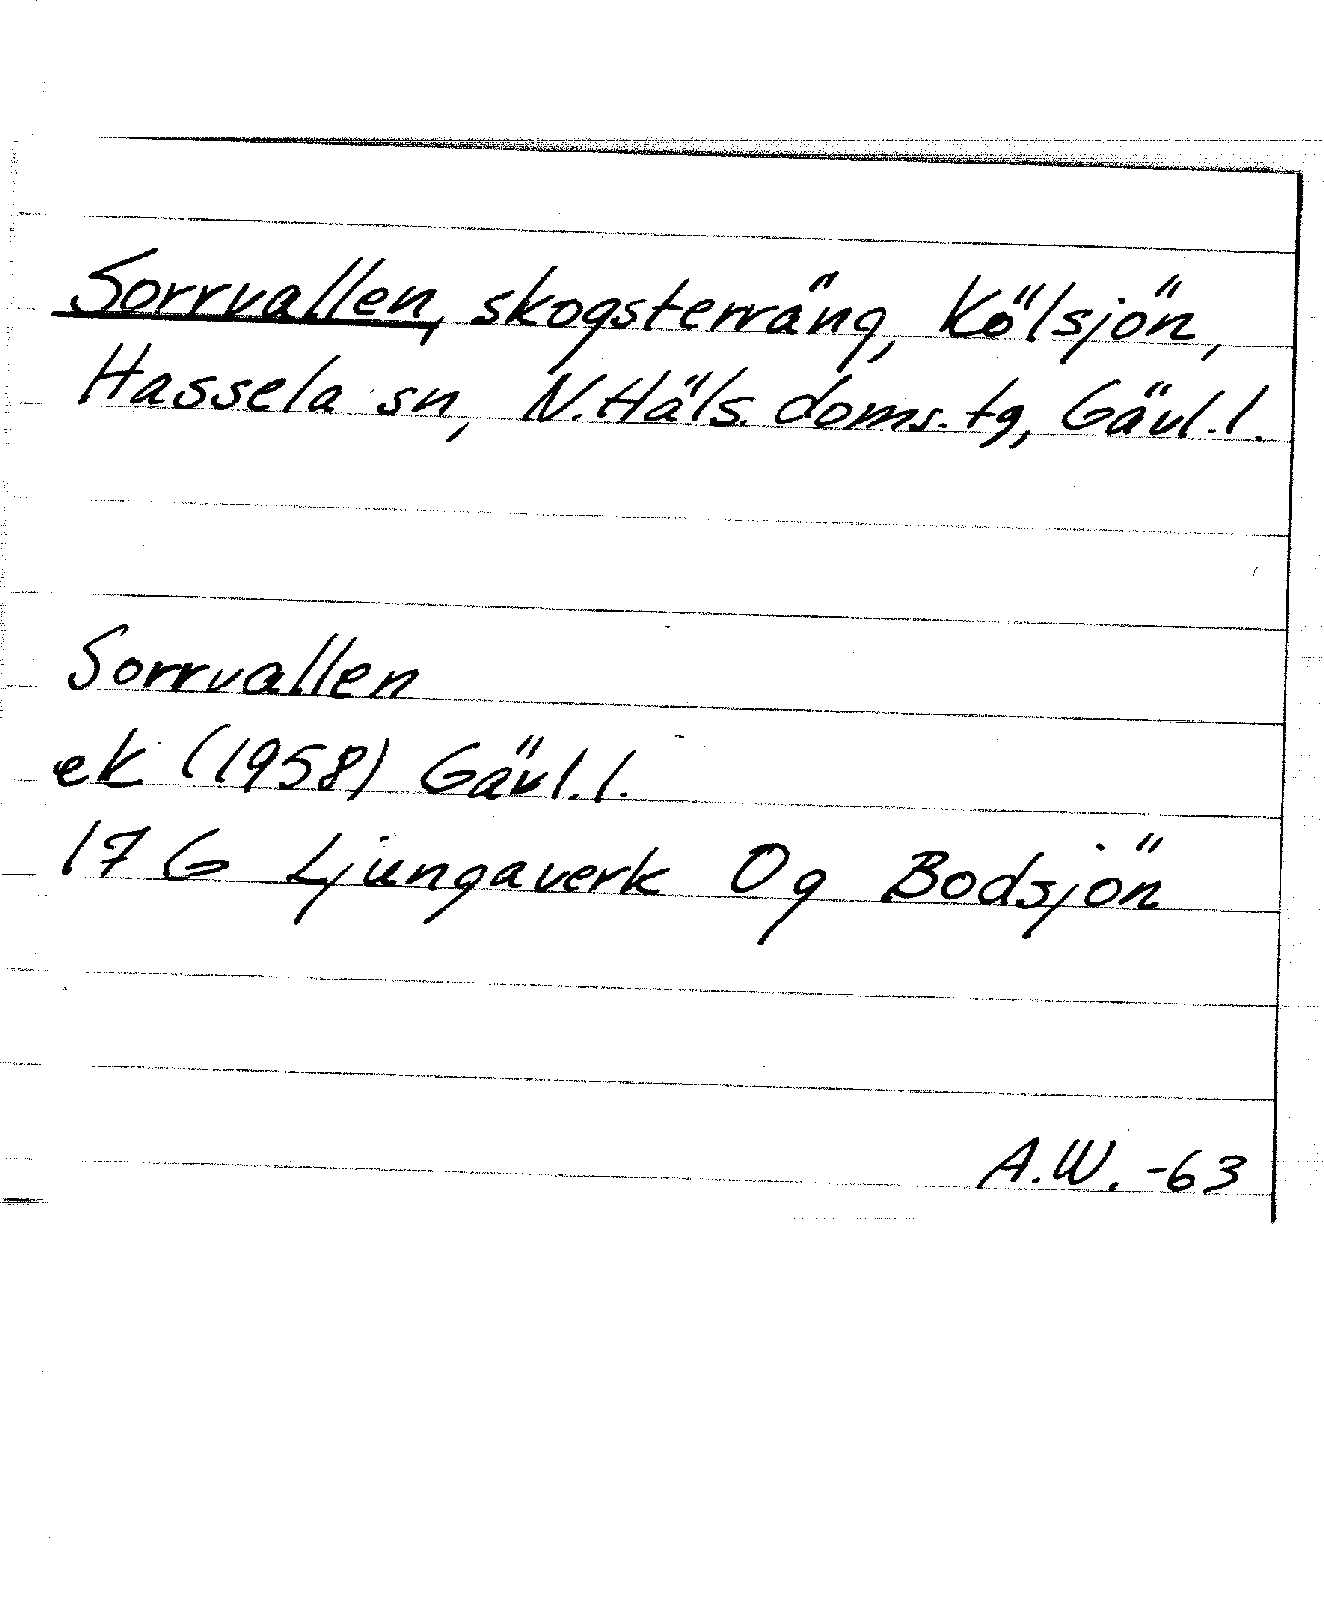 Sorrvallen, skogsterräng, Kölsjön,
Hassela sn, N.Häls. doms. tg, Gävl.l.
Sorrvallen
ek (1958) Gävl.l.
17 G Ljungaverk Og Bodsjön
A.W. -63